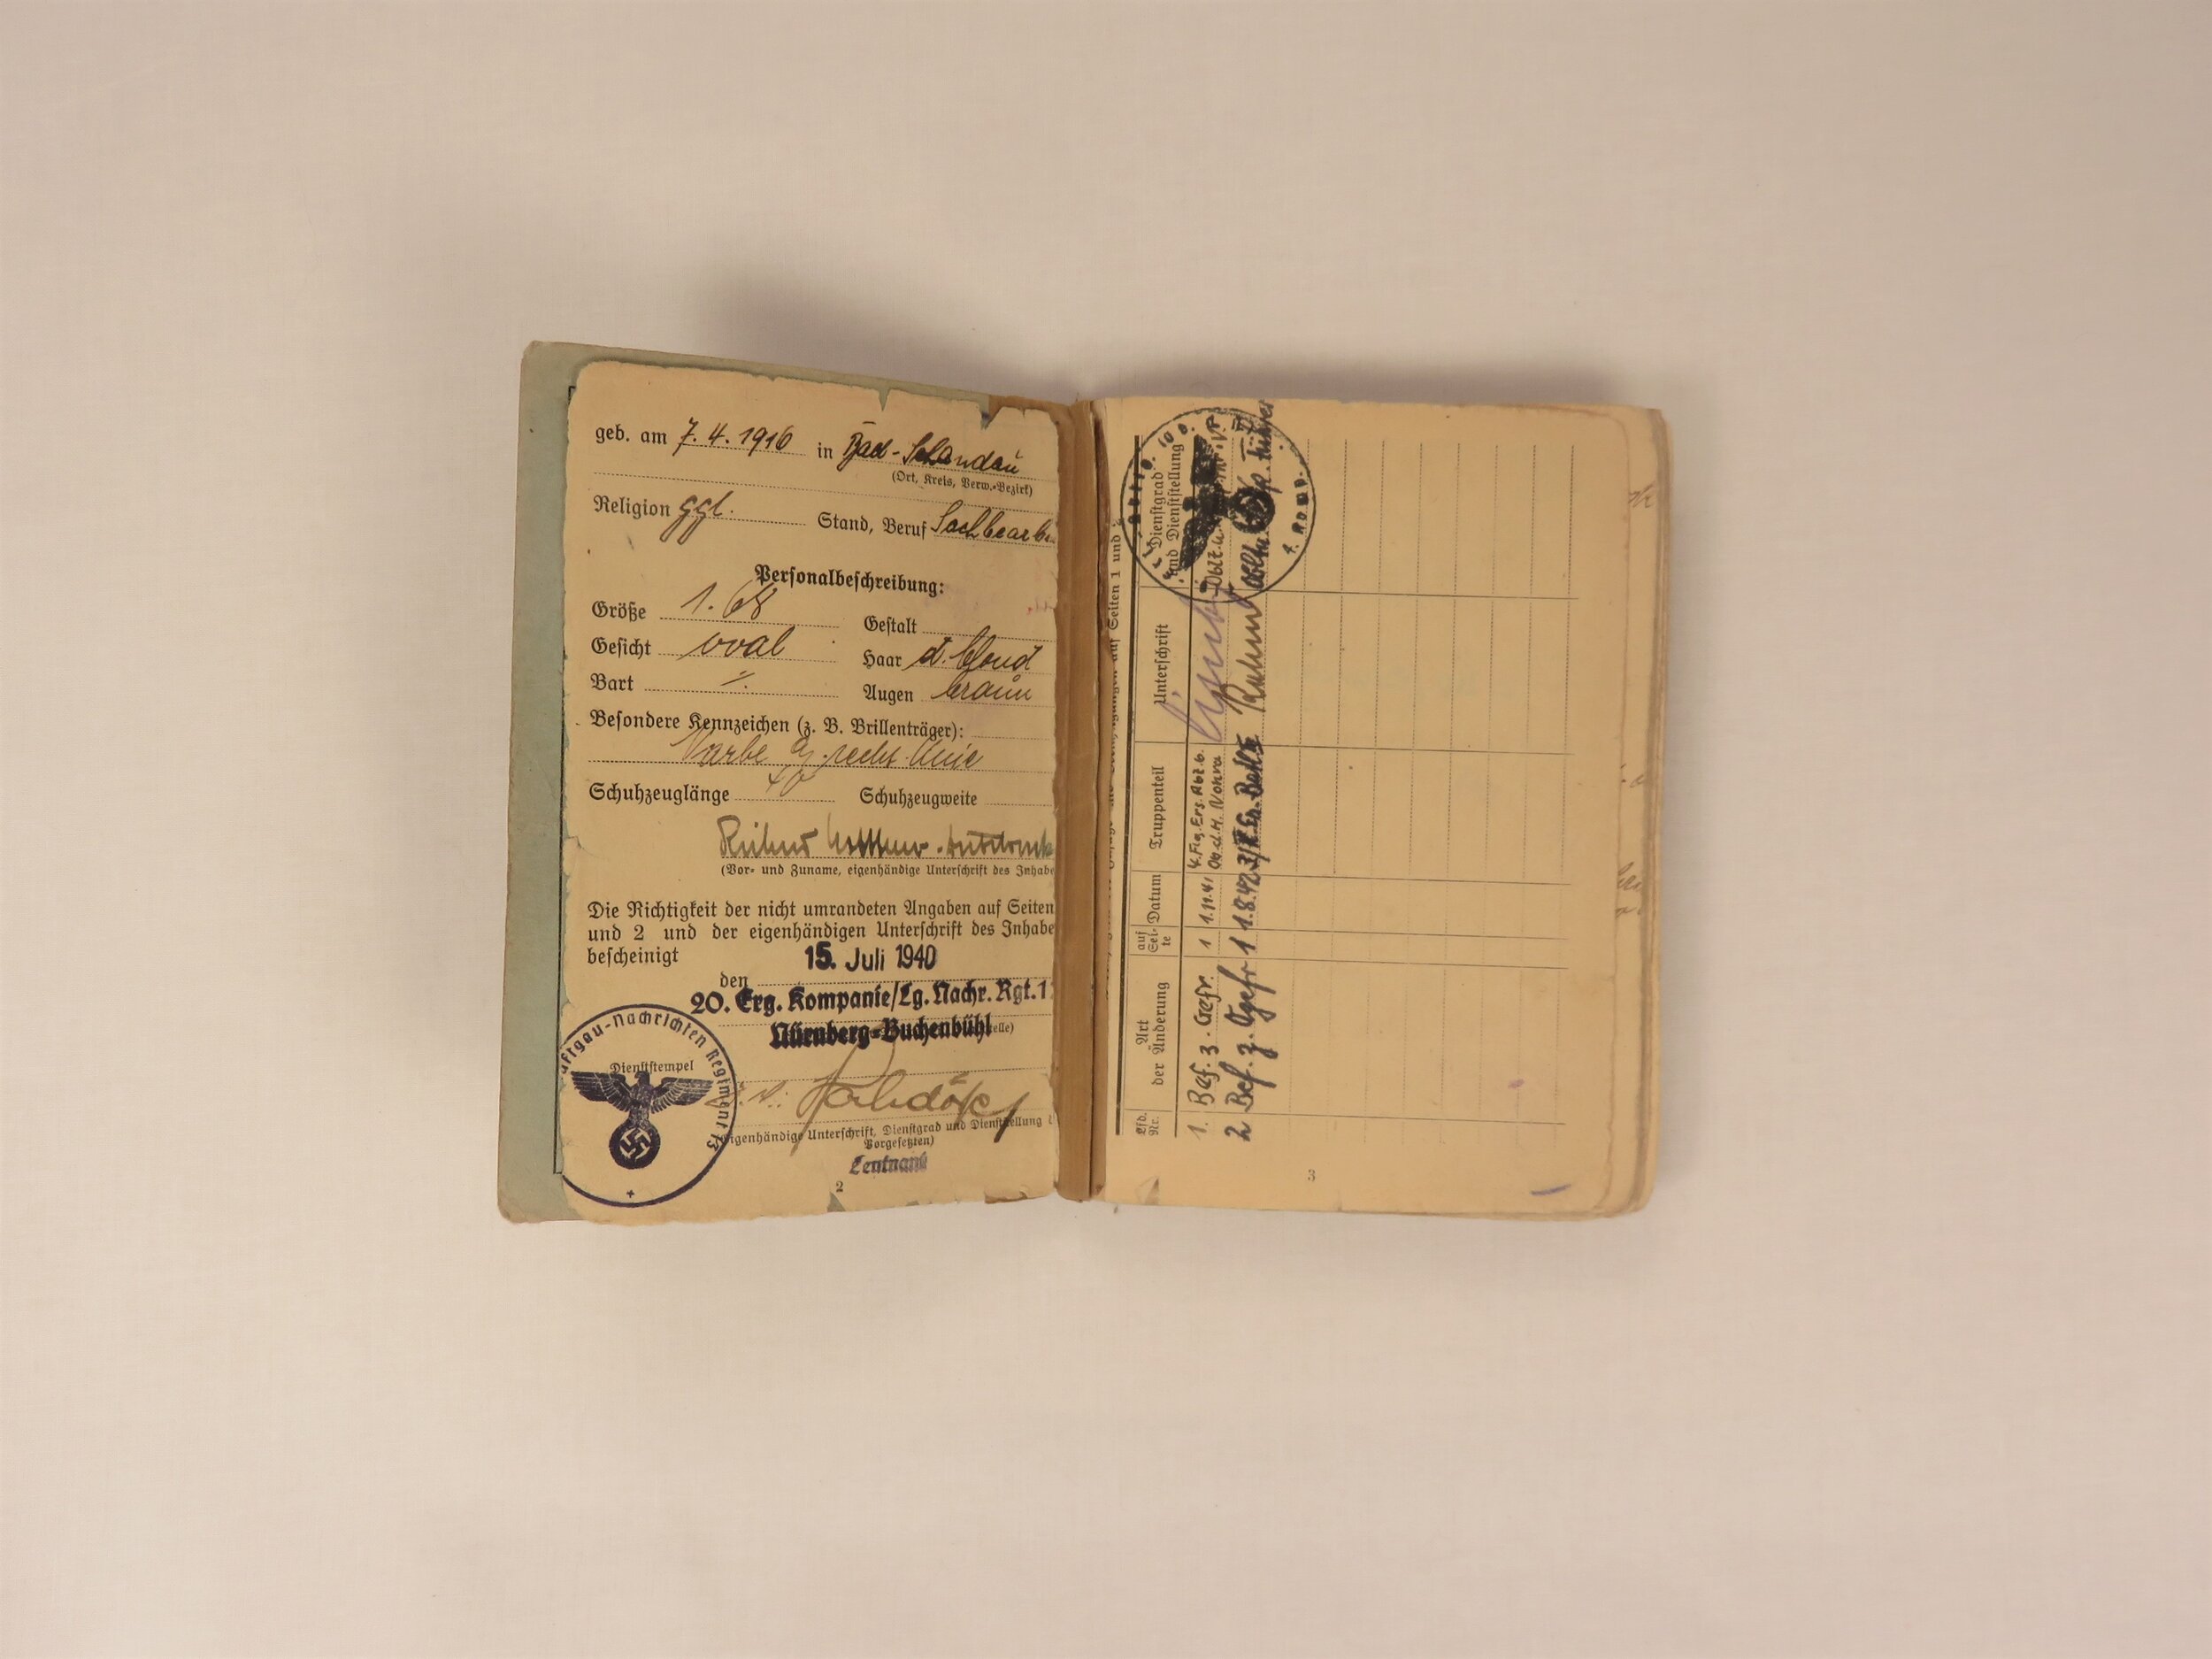 geb. am 7. 4. 1916 in Bad-Schandau
(Ort, Kreis, Verw.-Bezirk)
Religion ggl. Stand, Beruf Sachbearbe
Personalbeschreibung:
Größe 1.68 Gestalt
Gesicht oval Haar d. blond
Bart ./. Augen braun
Besondere Kennzeichen (z. B. Brillenträger):
Narbe a. recht. Knie
Schuhzeuglänge 40 Schuhzeugweite
(Vor- und Zuname, eigenhändige Unterschrift des Inhabe
Die Richtigkeit der nicht umrandeten Angaben auf Seiten
und 2 und der eigenhändigen Unterschrift des Inhabe
bescheinigt
15. Juli 1940
den
20. Erg. Kompanie/Lg. Nachr. Rgt. 1
Nürnberg-Buchenbühl
elle)
Luftgau-Nachrichten Regiment 13
Dienststempel
(Eigenhändige Unterschrift, Dienstgrad und Dienststellung
Vorgesetzten)
Leutnant
2
auf Seiten 1 und
Lfd. Nr. Art der Änderung auf Seite Datum Truppenteil Unterschrift Dienstgrad und Dienststellung
1. Bef. z. Gefr. 1 1.11.41 4. Flg. Ers. Abt. b.
Ob. d. M. Nohra
2 Bef. z. Ogefr 1 1.8.42
4. Komp.
3